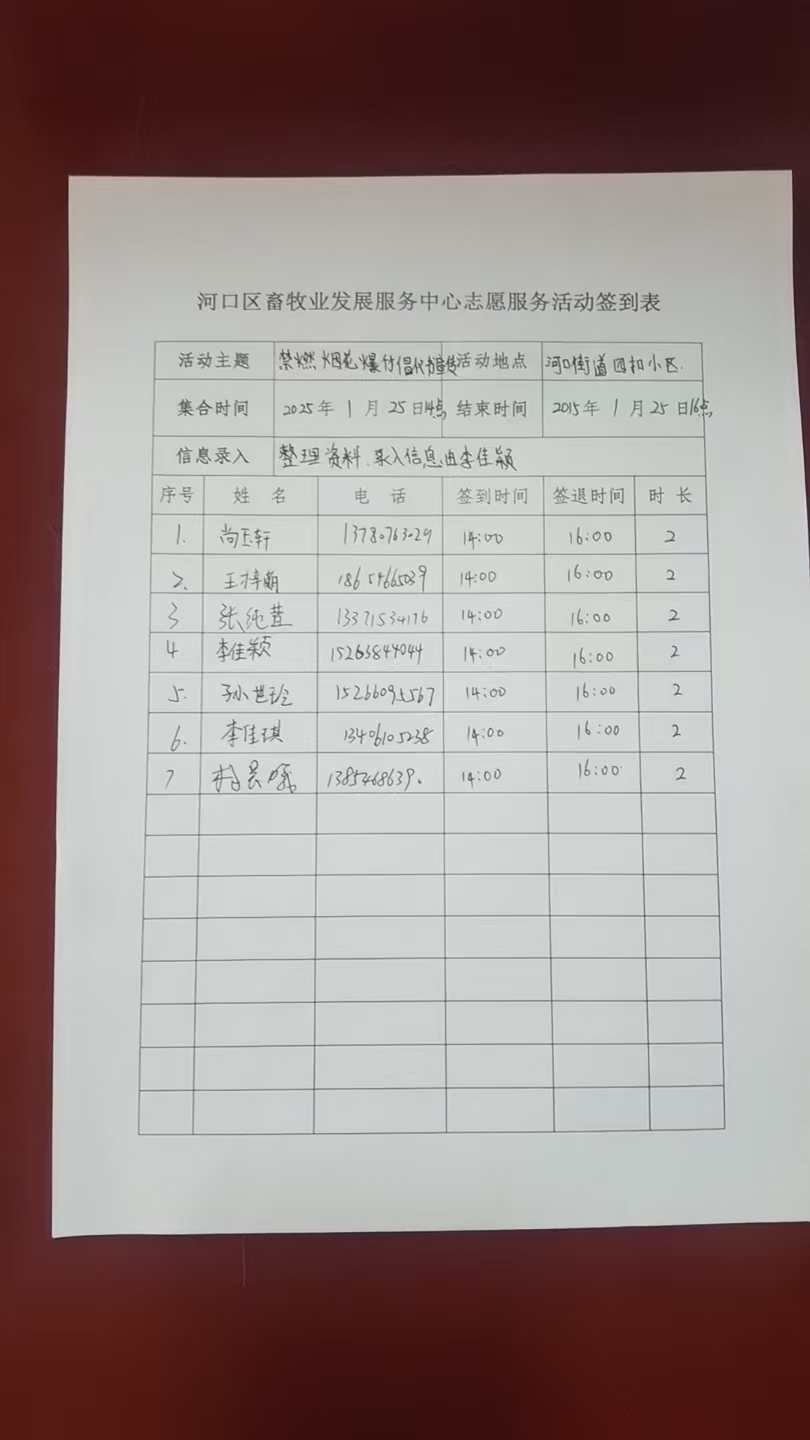 河口区畜牧业发展服务中心志愿服务活动签到表
活动主题 禁燃烟花爆竹倡议宣传 活动地点 河口街道四扣小区.
集合时间 2025年1月25日14点 结束时间 2015年1月25日16点
信息录入 整理资料.录入信息由李佳颖
序号 姓名 电话 签到时间 签退时间 时长
1. 尚玉轩 13780763029 14:00 16:00 2
2. 王梓萌 18654665039 14:00 16:00 2
3 张纯萱 13371534176 14:00 16:00 2
4 李佳颖 15263844044 14:00 16:00 2
5. 孙世玲 15266095567 14:00 16:00 2
6. 李佳琪 13406105238 14:00 16:00 2
7 13854686390 14:00 16:00 2